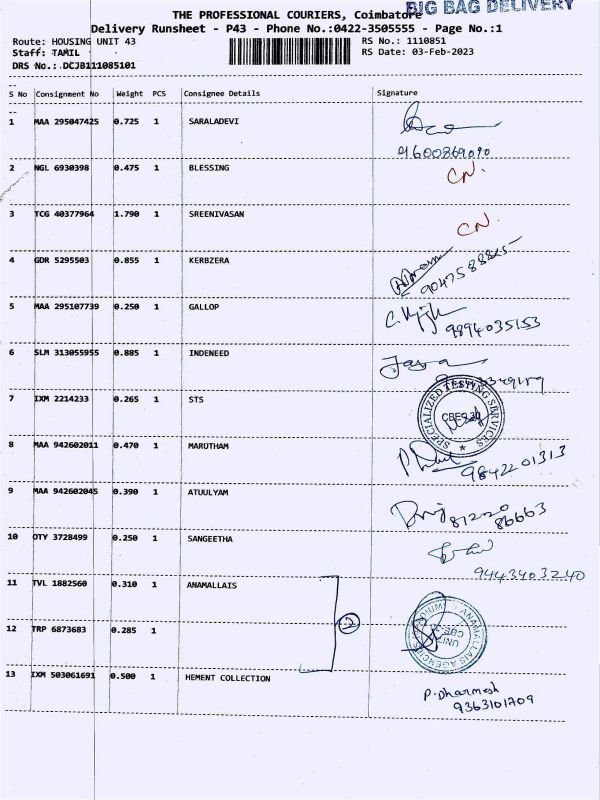 BIG BAG DELIVERY
THE PROFESSIONAL COURIERS, Coimbatore
Delivery Runsheet - P43 - Phone No.:0422-3505555 - Page No.:1
Route: HOUSING UNIT 43 RS No.: 1110851
Staff: TAMIL RS Date: 03-Feb-2023
DRS No.: DCJB111085101
S No Consignment No Weight PCS Consignee Details Signature
1 MAA 295047425 0.725 1 SARALADEVI
9600869090
2 NGL 6930398 0.475 1 BLESSING CN.
3 TCG 40377964 1.790 1 SREENIVASAN CN.
4 GDR 5295503 0.855 1 KERBZERA
9047588845
5 MAA 295107739 0.250 1 GALLOP
9894035153
6 SLM 313055955 0.885 1 INDENEED
7 IXM 2214233 0.265 1 STS
SPECIALIZED TESTING SERVICES
8 MAA 942602011 0.470 1 MARUTHAM
9842201313
9 MAA 942602045 0.390 1 ATUULYAM
81220
86663
10 OTY 3728499 0.250 1 SANGEETHA
9443403240
11 TVL 1882560 0.310 1 ANAMALLAIS
12 TRP 6873683 0.285 1 2
ANAMALLAIS AGENCIES
13 IXM 503061691 0.500 1 HEMENT COLLECTION
P. Dharmesh
9363101709